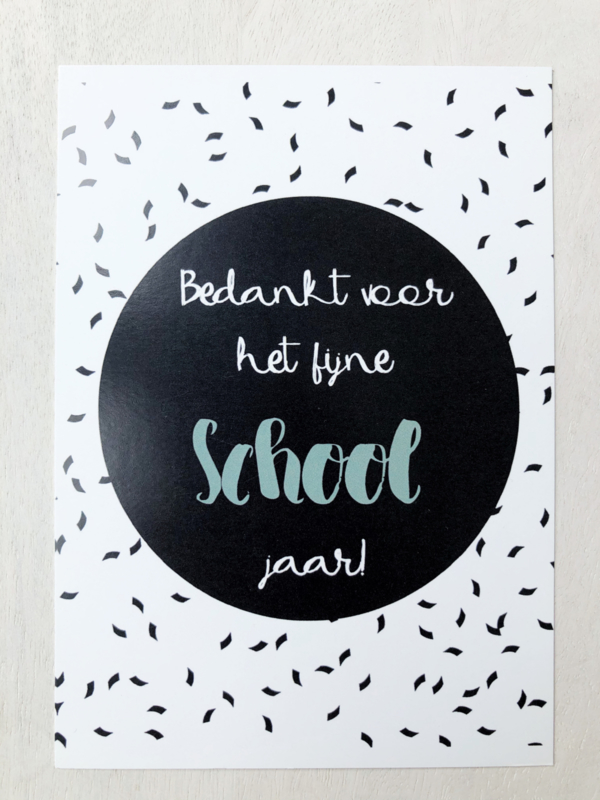 Bedankt voor
het fijne
School
jaar!